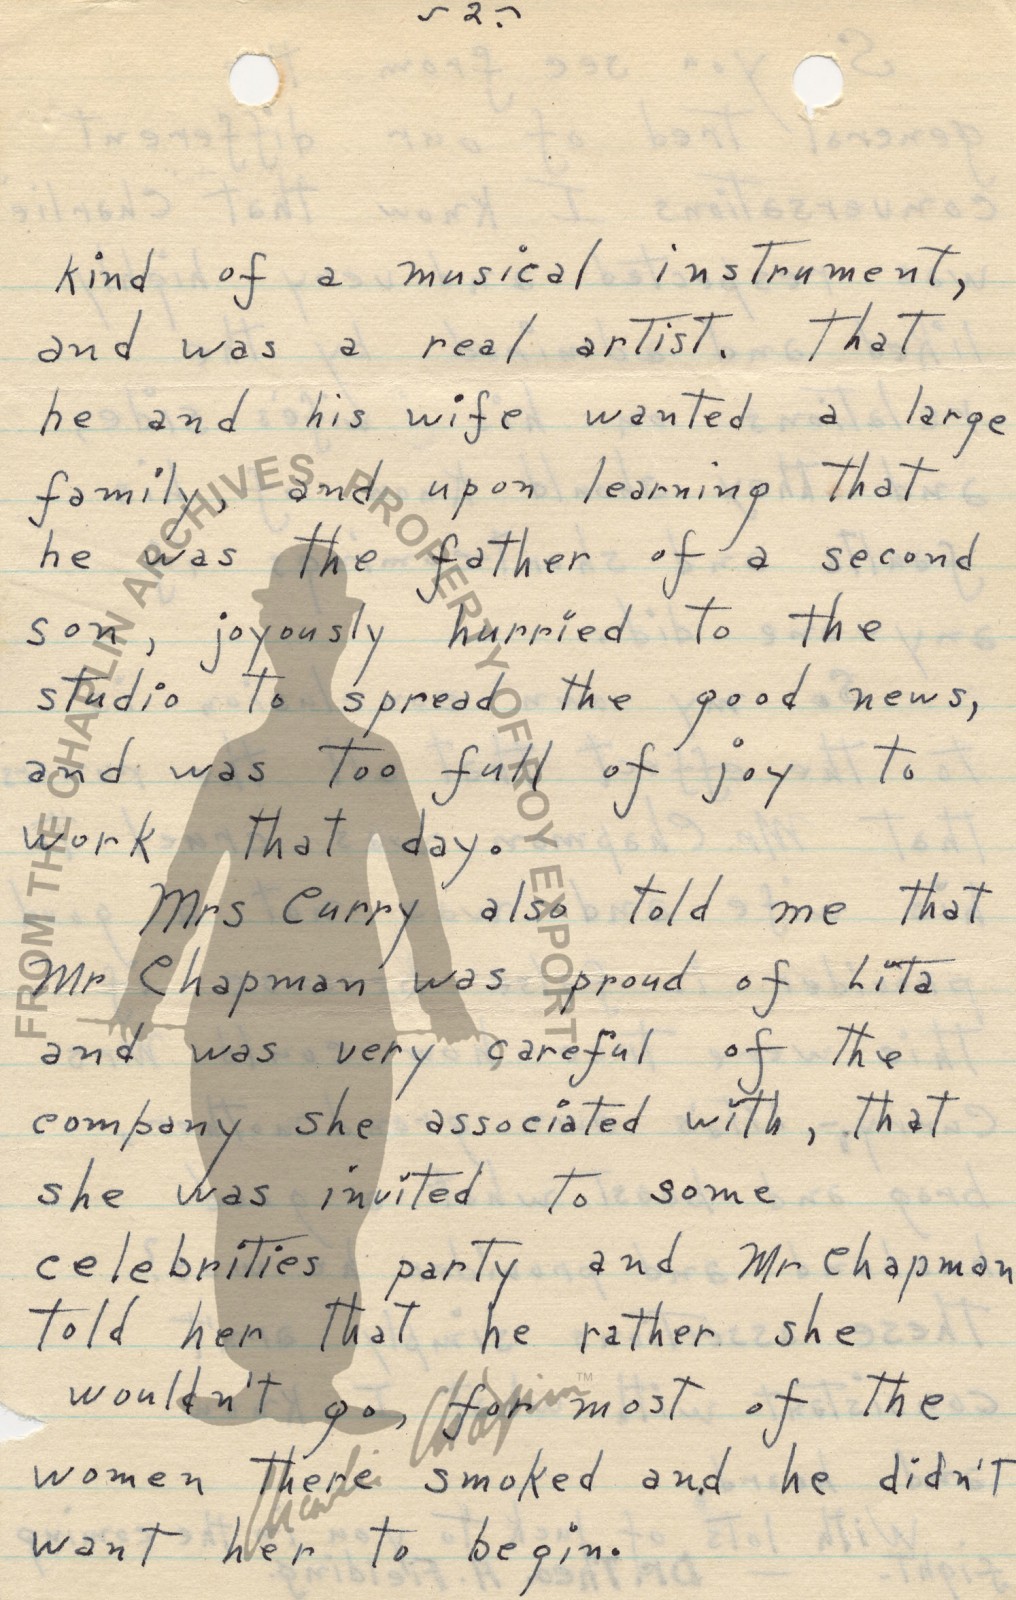 ~ 2 ~
kind of a musical instrument,
and was a real artist. That
he and his wife wanted a large
family, and upon learning that
he was the father of a second
son, joyously hurried to the
studio to spread the good news,
and was too full of joy to
work that day.
Mrs Curry also told me that
Mr Chapman was proud of Lita
and was very careful of the
company she associated with, that
she was invited to some
celebrities party and Mr Chapman
told her that he rather she
wouldn't go, for most of the
women there smoked and he didn't
want her to begin.
FROM THE CHAPLIN ARCHIVES, PROPERTY OF ROY EXPORT
Charlie Chaplin™